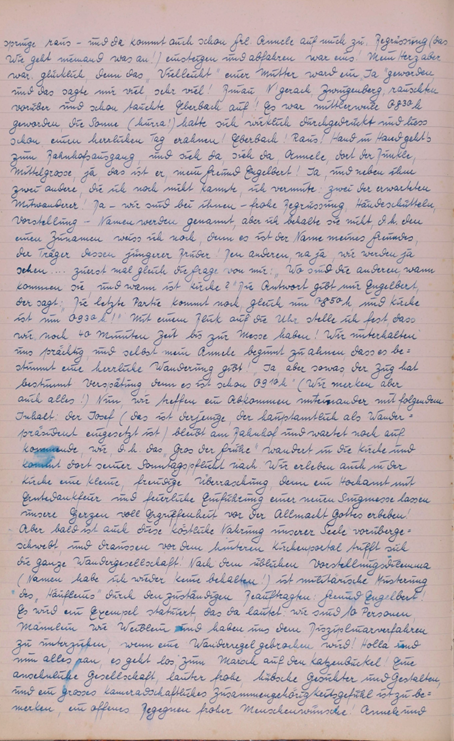 springe raus - und da kommt auch schon Frl Annele auf mich zu, Begrüssung (das
Wie geht niemand was an!) einsteigen und abfahren war eins! Mein Herz aber
war glücklich, denn das "Vielleicht" einer Mutter ward ein Ja geworden
und das sagte mir viel sehr viel! Neckargerach, Zwingenberg, rauschten
vorüber und schon tauchte Eberbach auf! Es war mittlerweile 0830 h
geworden, die Sonne (hurra!) hatte sich wirklich durchgedrückt und liess
schon einen herrlichen Tag erahnen! Eberbach! Raus! Hand in Hand geht's
zum Bahnhofsausgang, und sieh da sieh da Annele, dort der dunkle,
Mittelgrosse, ja das ist er, mein Freund Engelbert! Ja, und neben ihm
zwei andere, die ich noch nicht kannte, ich vermute, zwei der erwarteten
Mitwanderer! Ja - wir sind bei ihnen - frohe Begrüssung, Händeschütteln,
Vorstellung - Namen werden genannt, aber ich behalte sie nicht, d.h. den
einen Zunamen weiss ich noch, denn es ist der Name meines Freundes,
der Träger dessen jüngerer Bruder! Den anderen, na ja, wir werden ja
sehen.... zuerst mal gleich die Frage von mir: Wo sind die anderen, wann
kommen sie, und wann ist Kirche? Die Antwort gibt mir Engelbert,
der sagt: Die letzte Partie kommt noch gleich um 0850 h und Kirche
ist um 0930 h!! Mit einem Blick auf die Uhr stelle ich fest, dass
wir noch 40 Minuten Zeit bis zur Messe haben! Wir unterhalten
uns prächtig und selbst mein Annele beginnt zu ahnen dass es be-
stimmt eine herrliche Wanderung gibt! Ja aber sowas der Zug hat
bestimmt Verspätung denn es ist schon 0910 h! (Wir merken aber
auch alles!) Nun wir treffen ein Abkommen miteinander mit folgendem
Inhalt: der Josef (das ist derjenige der hauptamtlich als Wander-
präsident eingesetzt ist) bleibt am Bahnhof und wartet noch auf
kommende wir d.h. das "Gros der Frühe" wandert in die Kirche und
kommt dort seiner Sonntagspflicht nach. Wir erleben auch in der
Kirche eine kleine, freudige Überraschung denn ein Hochamt mit
Erntedankfeier und feierliche Einführung einer neuen Singmesse lassen
unsere Herzen voll Ergriffenheit vor der Allmacht Gottes erbeben!
Aber bald ist auch diese köstliche Nahrung unserer Seele vorüberge-
schwebt, und draussen vor dem hinteren Kirchenportal trifft sich
die ganze Wandergesellschaft! Nach dem üblichen Vorstellungsdilemma
(Namen habe ich wieder keine behalten!) ist militärische Musterung
des "Häufleins" durch den zuständigen Beauftragten: Freund Engelbert!
Es wird ein Exempel statuiert, das da lautet wir sind 10 Personen
Männlein wie Weiblein und haben uns dem Disziplinarverfahren
zu unterziehen, wenn eine Wanderregel gebrochen wird! Holla und
nun alles an, es geht los zum Marsch auf den Katzenbuckel! Eine
ansehnliche Gesellschaft, lauter frohe hübsche Gesichter und Gestalten,
und ein grosses kameradschaftliches Zusammengehörigkeitsgefühl ist zu be-
merken, ein offenes Begegnen froher Menschenwünsche! Annele und